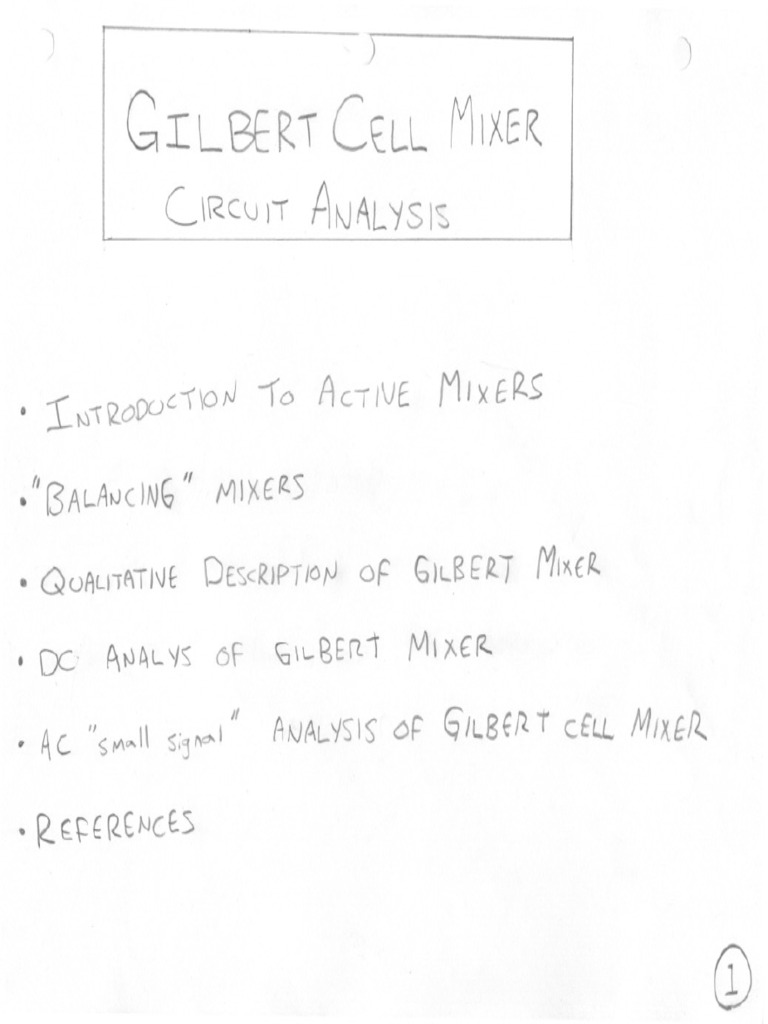 GILBERT CELL MIXER
CIRCUIT ANALYSIS
• INTRODUCTION TO ACTIVE MIXERS
• "BALANCING" MIXERS
• QUALITATIVE DESCRIPTION OF GILBERT MIXER
• DC ANALYS OF GILBERT MIXER
• AC "small signal" ANALYSIS OF GILBERT CELL MIXER
• REFERENCES
1